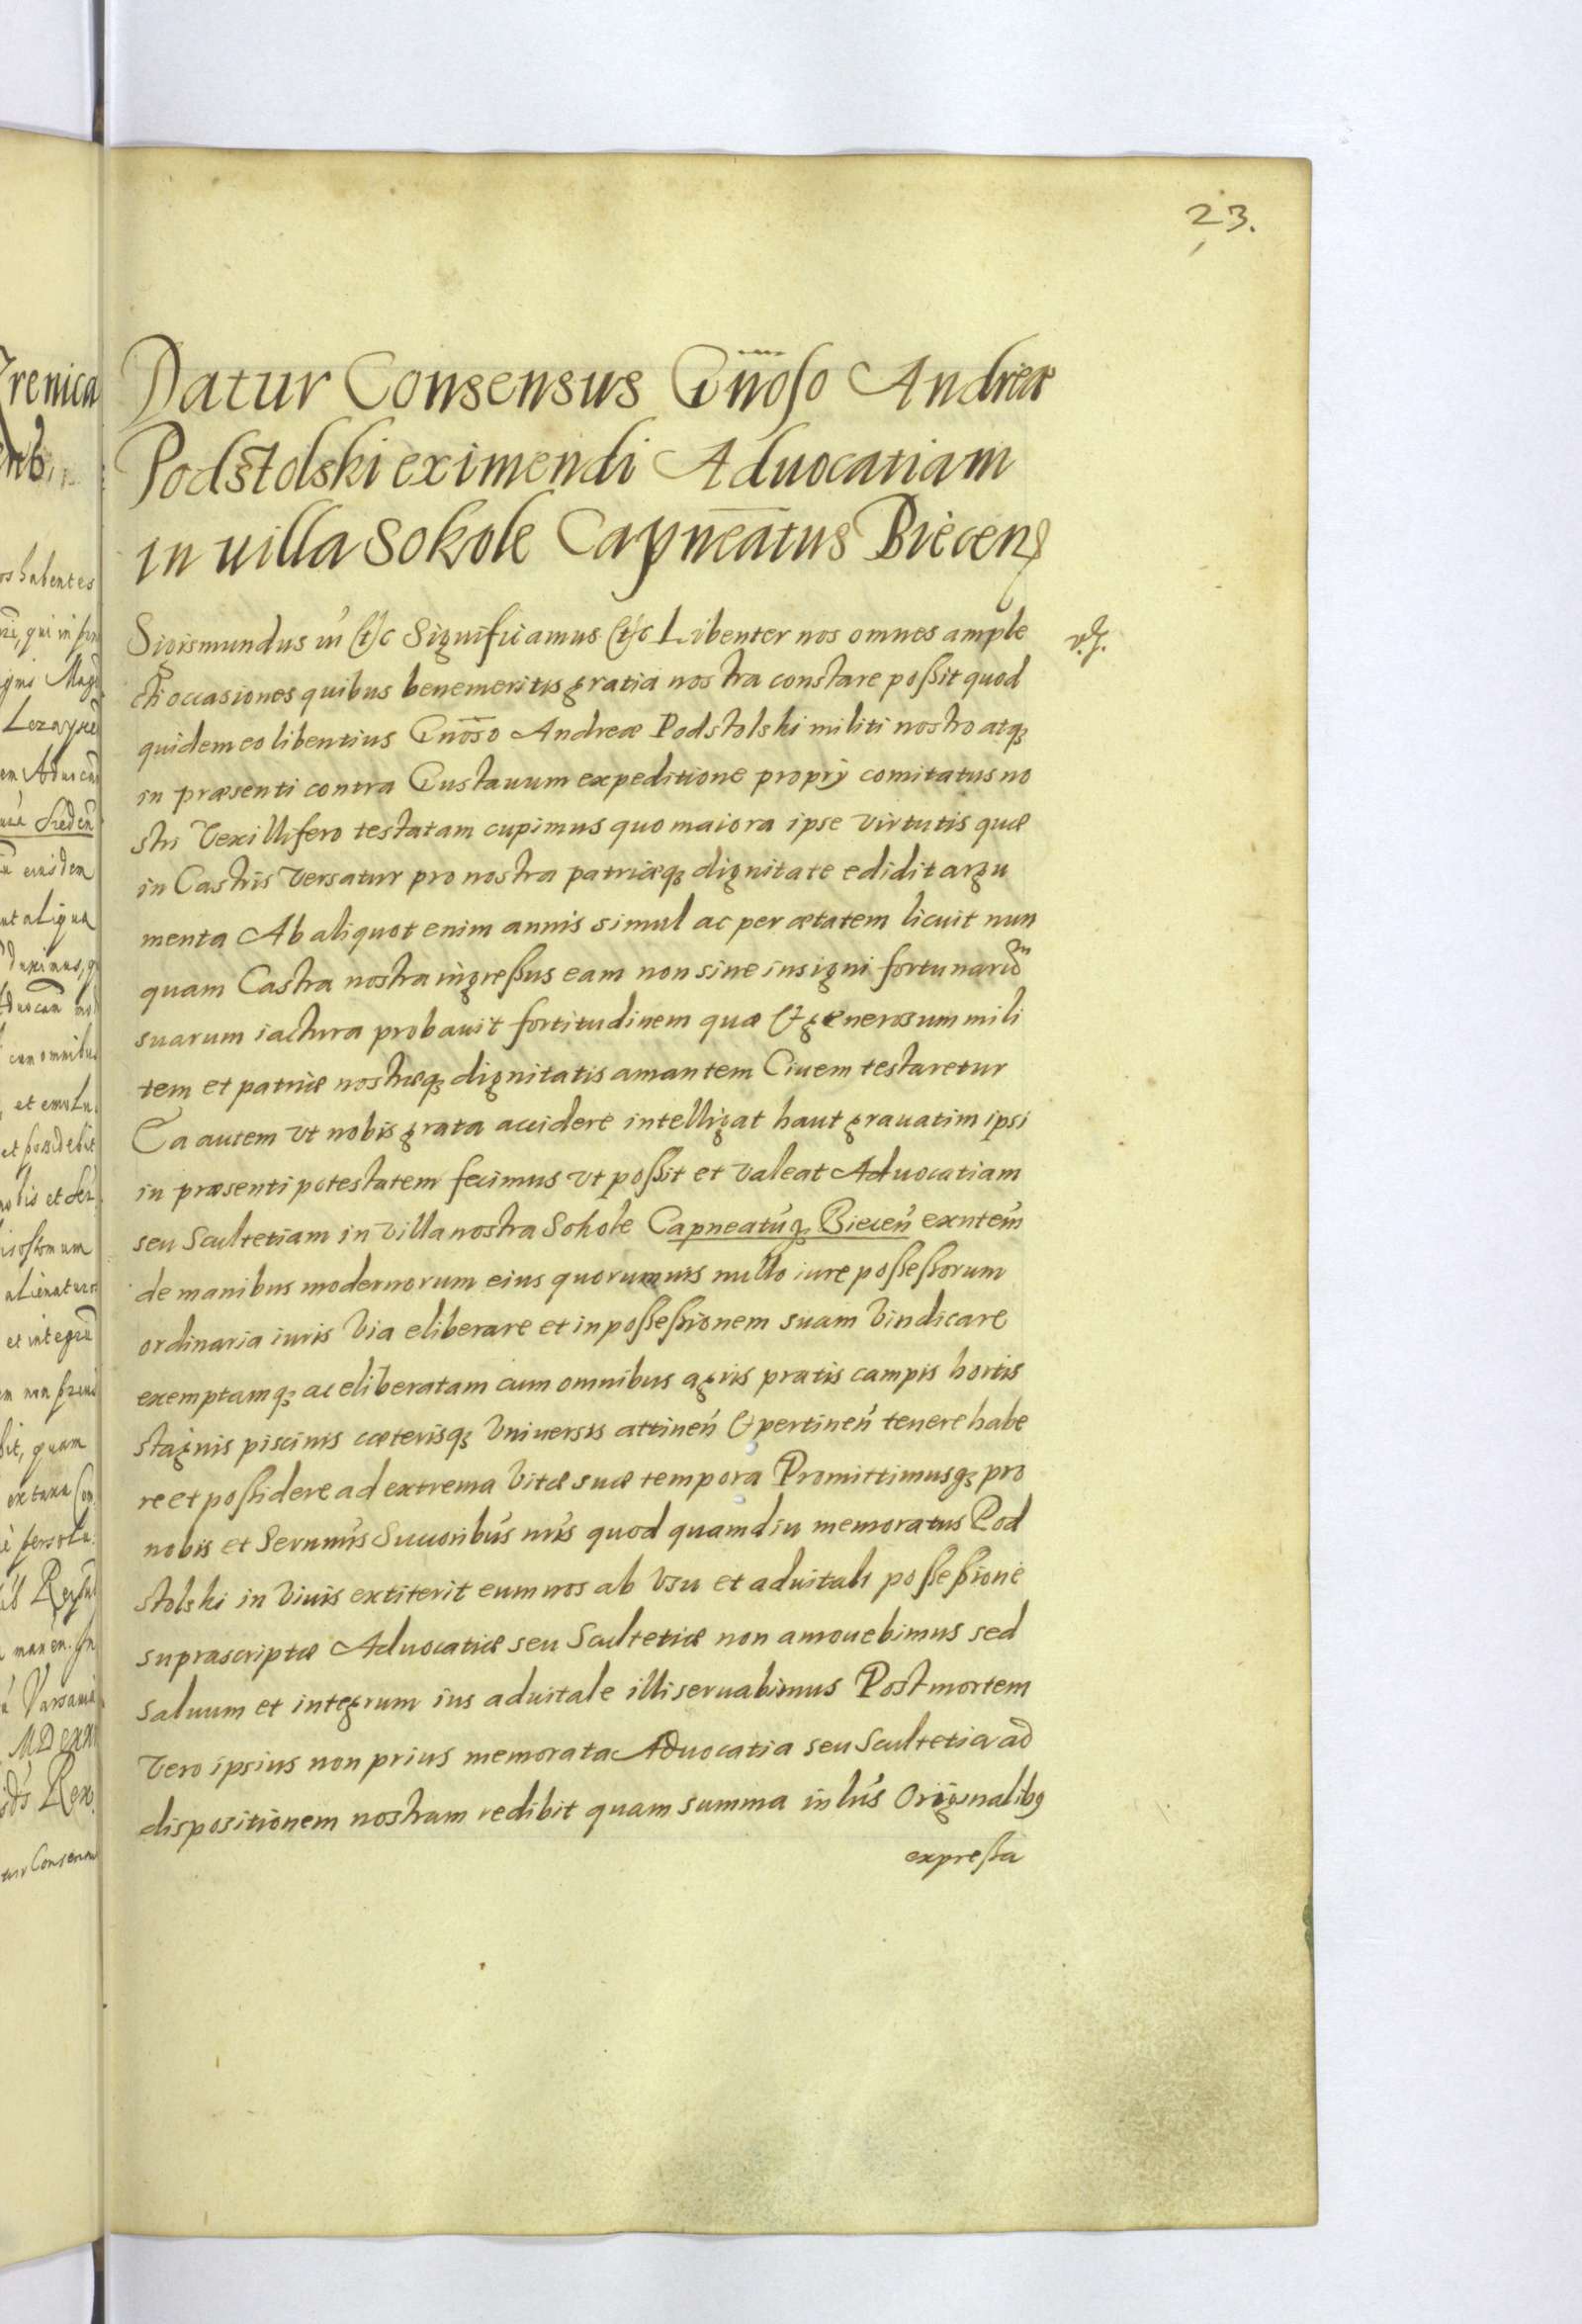 23.
Datur Consensus Gn̄oso Andreæ
Podstolski eximendi Aduocatiam
in uilla Sokole Capneatus Biecens
Sigismundus etc Significamus etc Libenter nos omnes ample
cti occasiones quibus benemeritis gratia nostra constare possit quod
quidem eo libentius Gn̄oso Andreæ Podstolski militi nostro atq;
in præsenti contra Gustauum expeditione proprij comitatus no
stri Vexillifero testatam cupimus quo maiora ipse virtutis quæ
in Castris versatur pro nostra patriæq; dignitate edidit argu
menta Ab aliquot enim annis simul ac per ætatem licuit nun
quam Castra nostra ingressus eam non sine insigni fortunarum
suarum iactura probauit fortitudinem quæ & generosum mili
tem et patriæ nostræq; dignitatis amantem Ciuem testaretur
Ea autem vt nobis grata accidere intelligat haut grauatim ipsi
in præsenti potestatem fecimus vt possit et valeat Aduocatiam
seu Scultetiam in villa nostra Sokole Capneatuq; Biecen̄ exn̄tem
de manibus modernorum eius quorumuis nullo iure possessorum
ordinaria iuris via eliberare et in possessionem suam vindicare
exemptamq; ac eliberatam cum omnibus agris pratis campis hortis
stagnis piscinis cæterisq; vniuersis attinen̄ & pertinen̄ tenere habe
re et possidere ad extrema vitæ suæ tempora Promittimusq; pro
nobis et Serenn̄is Succoribus nr̄is quod quamdiu memoratus Pod
stolski in viuis extiterit eum nos ab vsu et aduitali possessione
suprascriptæ Aduocatiæ seu Scultetiæ non amouebimus sed
saluum et integrum ius aduitale illi seruabimus Post mortem
vero ipsius non prius memorata Aduocatia seu Scultetia ad
dispositionem nostram redibit quam summa in lr̄is Originalibq
expressa